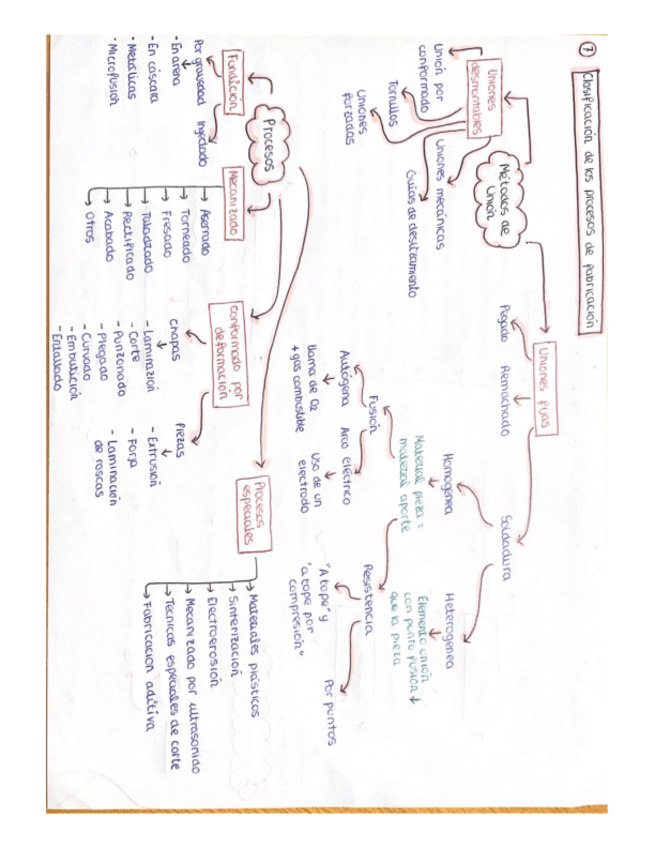 7 Clasificación de los procesos de fabricación
Métodos de
Unión
Uniones
desmontables
Unión por
conformado
Tornillos
Uniones
forzadas
Uniones mecánicas
Guías de deslizamiento
Uniones fijas
Pegado
Remachado
Soldadura
Homogenea
Material pieza =
material aporte
Heterogenea
Elemento unión
con punto fusión ↓
que la pieza
Fusión
Autógena
llama de O2
+ gas combustible
Arco eléctrico
Uso de un
electrodo
Resistencia
"A tope" y
"a tope por
compresión"
Por puntos
Procesos
Fundición
Por gravedad
- En arena
- En cáscara
- Metálicas
- Microfusión
Inyectado
Mecanizado
Aserrado
Torneado
Fresado
Taladrado
Rectificado
Acabado
Otros
Conformado por
deformación
Chapas
- Laminación
- Corte
- Punzonado
- Plegado
- Curvado
- Embutición
- Entallado
Piezas
- Extrusión
- Forja
- Laminación
de roscas
Procesos
especiales
Materiales plásticos
Sinterización
Electroerosión
Mecanizado por ultrasonido
Técnicas especiales de corte
Fabricación aditiva